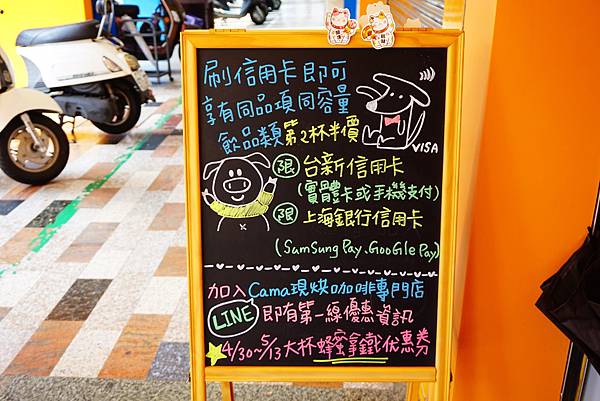 刷信用卡即可
享有同品項同容量
飲品類第2杯半價
VISA
限 台新信用卡
(實體卡或手機支付)
限 上海銀行信用卡
(SamSung Pay、GooGle Pay)
加入Cama現烘咖啡專門店
LINE 即有第一線優惠資訊
4/30~5/13大杯蜂蜜拿鐵优惠券